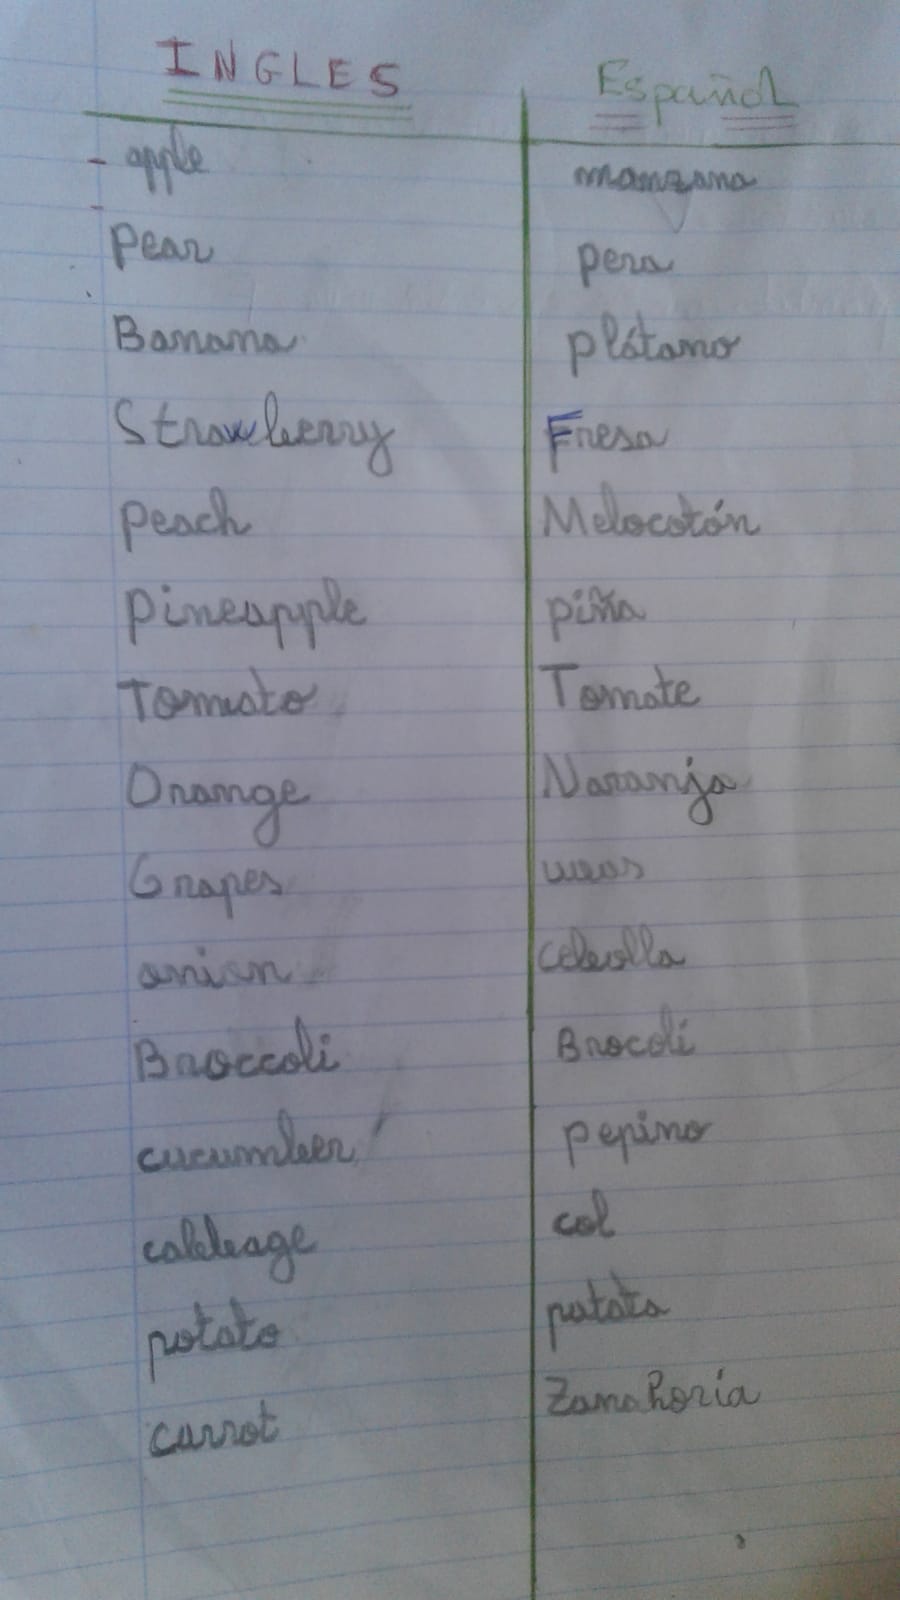 INGLES Español
apple manzana
Pear pera
Banana plátano
Strawberry Fresa
peach Melocotón
pineapple piña
Tomato Tomate
Orange Naranja
Grapes uvas
onion cebolla
Broccoli Brocoli
cucumber pepino
cabbage col
potato patata
carrot Zanahoria